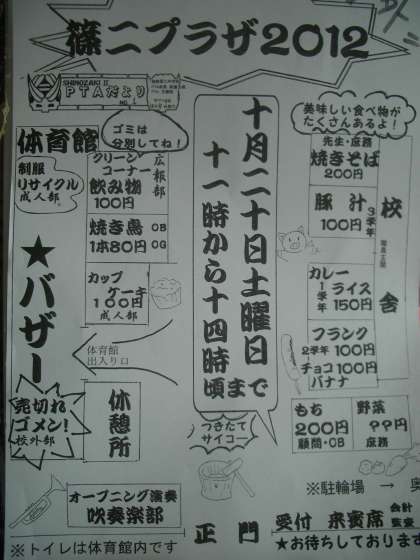 篠二プラザ2012
SHINOZAKI II
PTAだより
十月二十日土曜日
十一時から十四時
頃まで
美味しい食べ物が
たくさんあるよ！
先生・庶務
焼きそば
200円
豚汁
3学年
100円
校舎
職員玄関
カレー
ライス
1学年
150円
フランク
2学年 100円
チョコ 100円
バナナ
もち
200円
顧問・OB
野菜
??円
庶務
ゴミは
分別してね！
体育館
制服
リサイクル
成人部
クリーン
コーナー
広報部
飲み物
100円
焼き鳥 OB
1本80円 OG
カップ
ケーキ
100円
成人部
★バザー
体育館
出入り口
売切れ
ゴメン！
校外部
休憩所
つきたて
サイコー
オープニング演奏
吹奏楽部
正門
※駐輪場 → 奥
受付 来賓席 会計
監査
★お待ちしております
※トイレは体育館内です